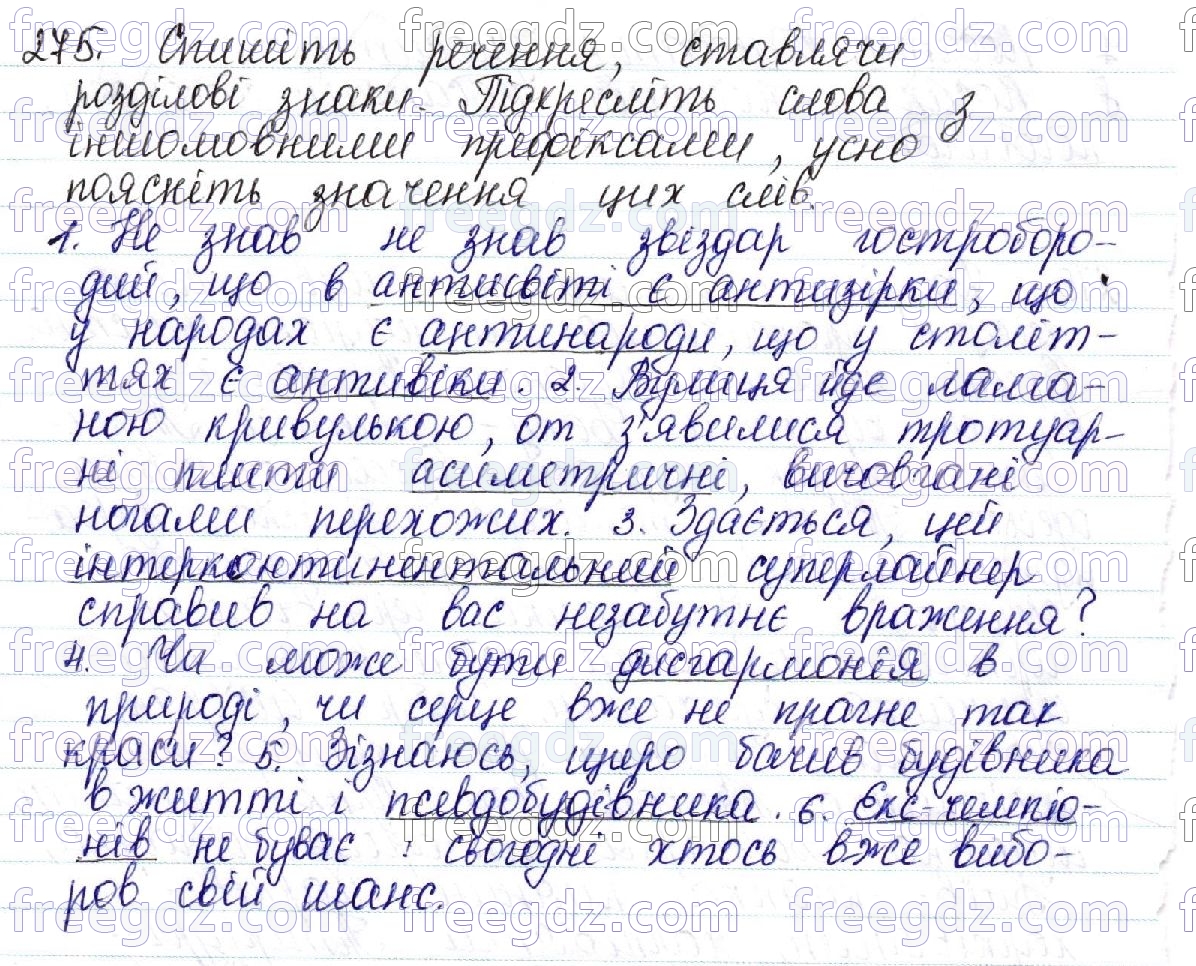 275. Спишіть речення, ставлячи
розділові знаки. Підкресліть слова з
іншомовними префіксами, усно
поясніть значення цих слів.
1. Не знав не знав звіздар гостроборо-
дий, що в антисвіті є антизірки, що
у народах є антинароди, що у століт-
тях є антивіки. 2. Вулиця йде лама-
ною кривулькою, от з'явилися тротуар-
ні плити асиметричні, вичовгані
ногами перехожих. 3. Здається, цей
інтерконтинентальний суперлайнер
справив на вас незабутнє враження?
4. Чи може бути дисгармонія в
природі, чи серце вже не прагне так
краси? 5. Зізнаюсь, щиро бачив будівника
в житті і псевдобудівника. 6. Екс-чемпіо-
нів не буває: сьогодні хтось вже вибо-
ров свій шанс.
freegdz.com